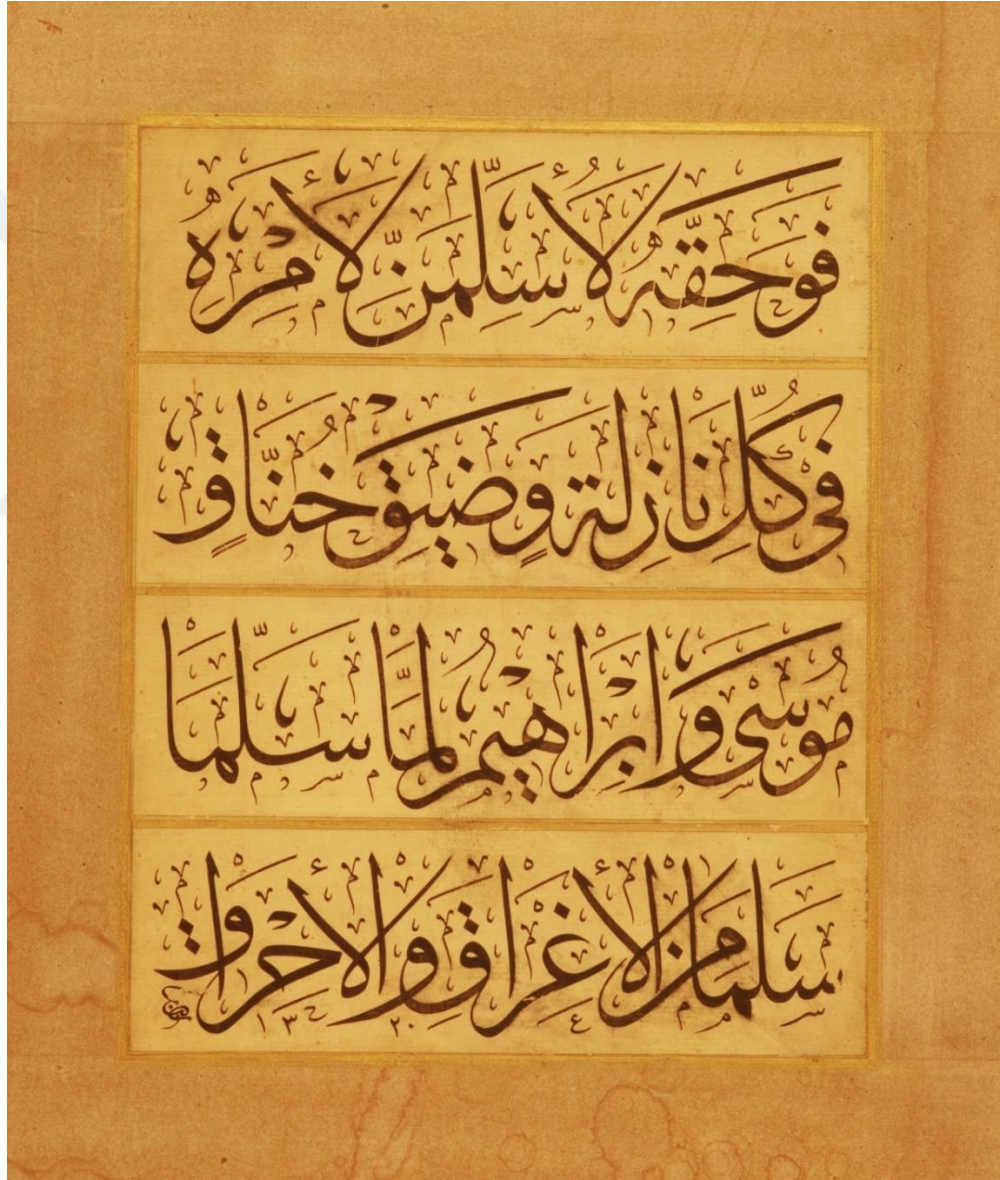 فَوَحَقِّهِ لَأُسَلِّمَنَّ لِأَمْرِهِ
فِي كُلِّ نَازِلَةٍ وَضِيقِ خُنَّاقٍ
مُوسَى وَإِبْرَاهِيمُ لَمَّا سَلَّمَا
سَلِمَا مِنَ الْإِغْرَاقِ وَالْإِحْرَاقِ